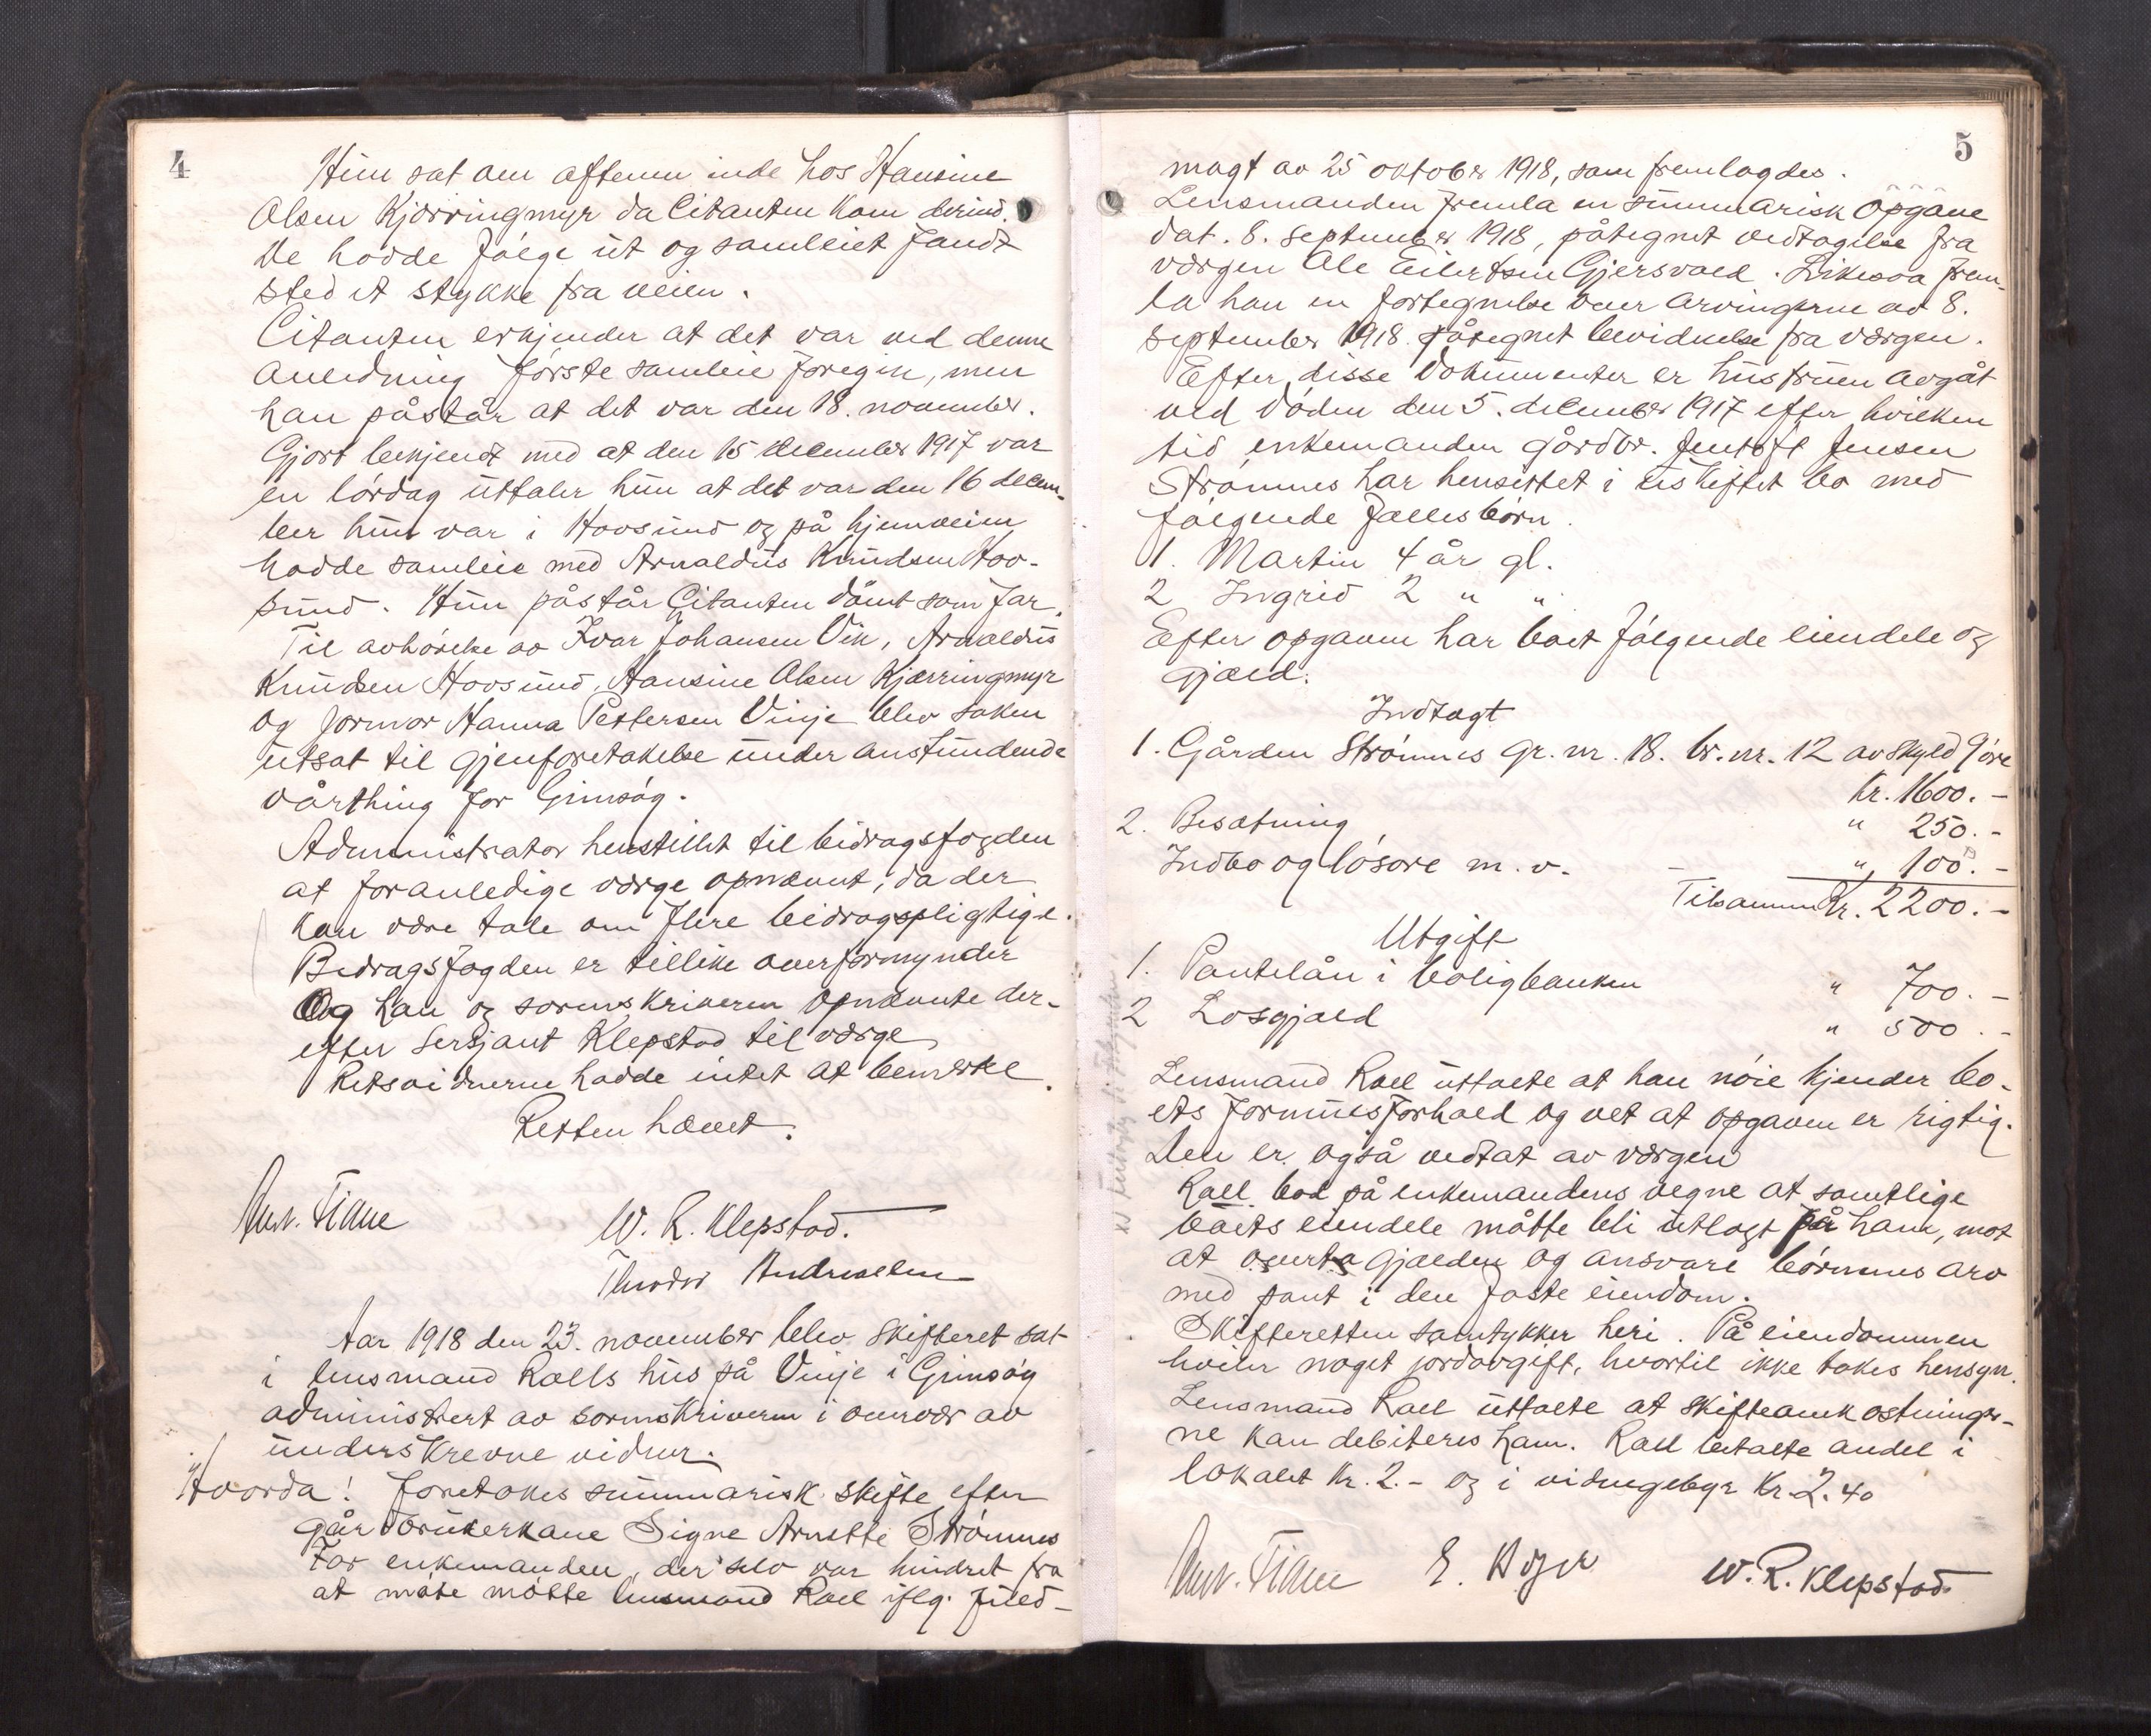 4
Hun sat om aftenen inde hos Hansine
Olsen Kjærringmyr da Citanten kom derind.
De hadde følge ut og samleiet fandt
sted et stykke fra veien.
Citanten erkjender at det var ved denne
anledning første samleie foregik, men
han påstår at det var den 18. november.
Gjort bekjendt med at den 15 december 1917 var
en lørdag uttaler hun at det var den 16 decem-
ber hun var i Hovsund og på hjemveien
hadde samleie med Arnaldus Knudsen Hov-
sund. Hun påstår Citanten dømt som far.
Til avhørelse av Ivar Johansen Vik, Arnaldus
Knudsen Hovsund, Hansine Olsen Kjærringmyr
og jormor Hanna Pettersen Vinje blev saken
utsat til gjenforetakelse under anstundende
vårthing for Gimsøy.
Administrator henstillet til bidragsfogden
at foranledige værge opnævnt, da der
kan være tale om flere bidragspligtige.
Bidragsfogden er tillike overformynder
Og han og sorenskriveren opnævnte der-
efter Sersjant Klepstad til værge
Retsvidnerne hadde intet at bemerke.
Retten hævet.
Anr. Tiane
W. R. Klepstad.
Theodor Andreassen
Aar 1918 den 23. november blev skifteret sat
i lensmand Rolls hus på Vinje i Gimsøy
administrert av sorenskriveren i overvær av
underskrevne vidner.
Hvorda! Foretokes summarisk skifte efter
gårdbrukerkane Signe Arnette Strømnes
For enkemanden, der selv var hindret fra
at møte møtte lensmand Roll iflg. fuld-
5
magt av 25 oktober 1918, som fremlagdes.
Lensmanden fremla en summarisk Opgave
dat. 8. september 1918, påtegnet vedtagelse fra
værgen Ole Eilertsen Gjersvold. Likesaa frem-
la han en fortegnelse over arvingerne av 8.
september 1918 påtegnet bevidnelse fra værgen.
Efter disse dokumenter er hustruen avgåt
ved døden den 5. december 1917 efter hvilken
tid enkemanden gårdbr. Jentoft Jensen
Strømnes har hensittet i uskiftet bo med
følgende fællesbørn.
1. Martin 4 år gl.
2 Ingrid 2 " "
Efter opgaven har boet følgende eiendele og
gjæld.
Indtægt
1. Gården Strømnes gr. nr. 18. br. nr. 12 av skyld 9 øre
Kr. 1600. -
2. Besætning " 250. -
Indbo og løsøre m. v. - " 100. -
Tilsammen Kr. 2200. -
Utgift
1. Pantelån i boligbanken " 700. -
2 Løsgjæld " 500. -
Lensmand Roll uttalte at han nøie kjender bo-
ets formuesforhold og vet at opgaven er rigtig.
Den er også vedtat av værgen
Roll bad på enkemandens vegne at samtlige
boets eiendele måtte bli utlagt på ham, mot
at overta gjælden og ansvare børnenes arv
med pant i den faste eiendom.
Skifteretten samtykker heri. På eiendommen
hviler noget jordavgift, hvortil ikke tokes hensyn.
Lensmand Roll uttalte at skifteomkostninger-
ne kan debiteres ham. Roll betalte andel i
lokalet Kr. 2. - og i vidnegebyr Kr. 2.40
Anr. Tiane
W. R. Klepstad